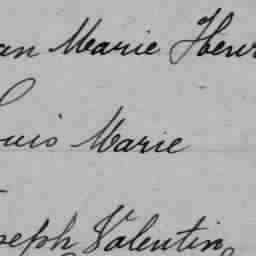 an Marie Henr
ouis Marie
seph Valentin